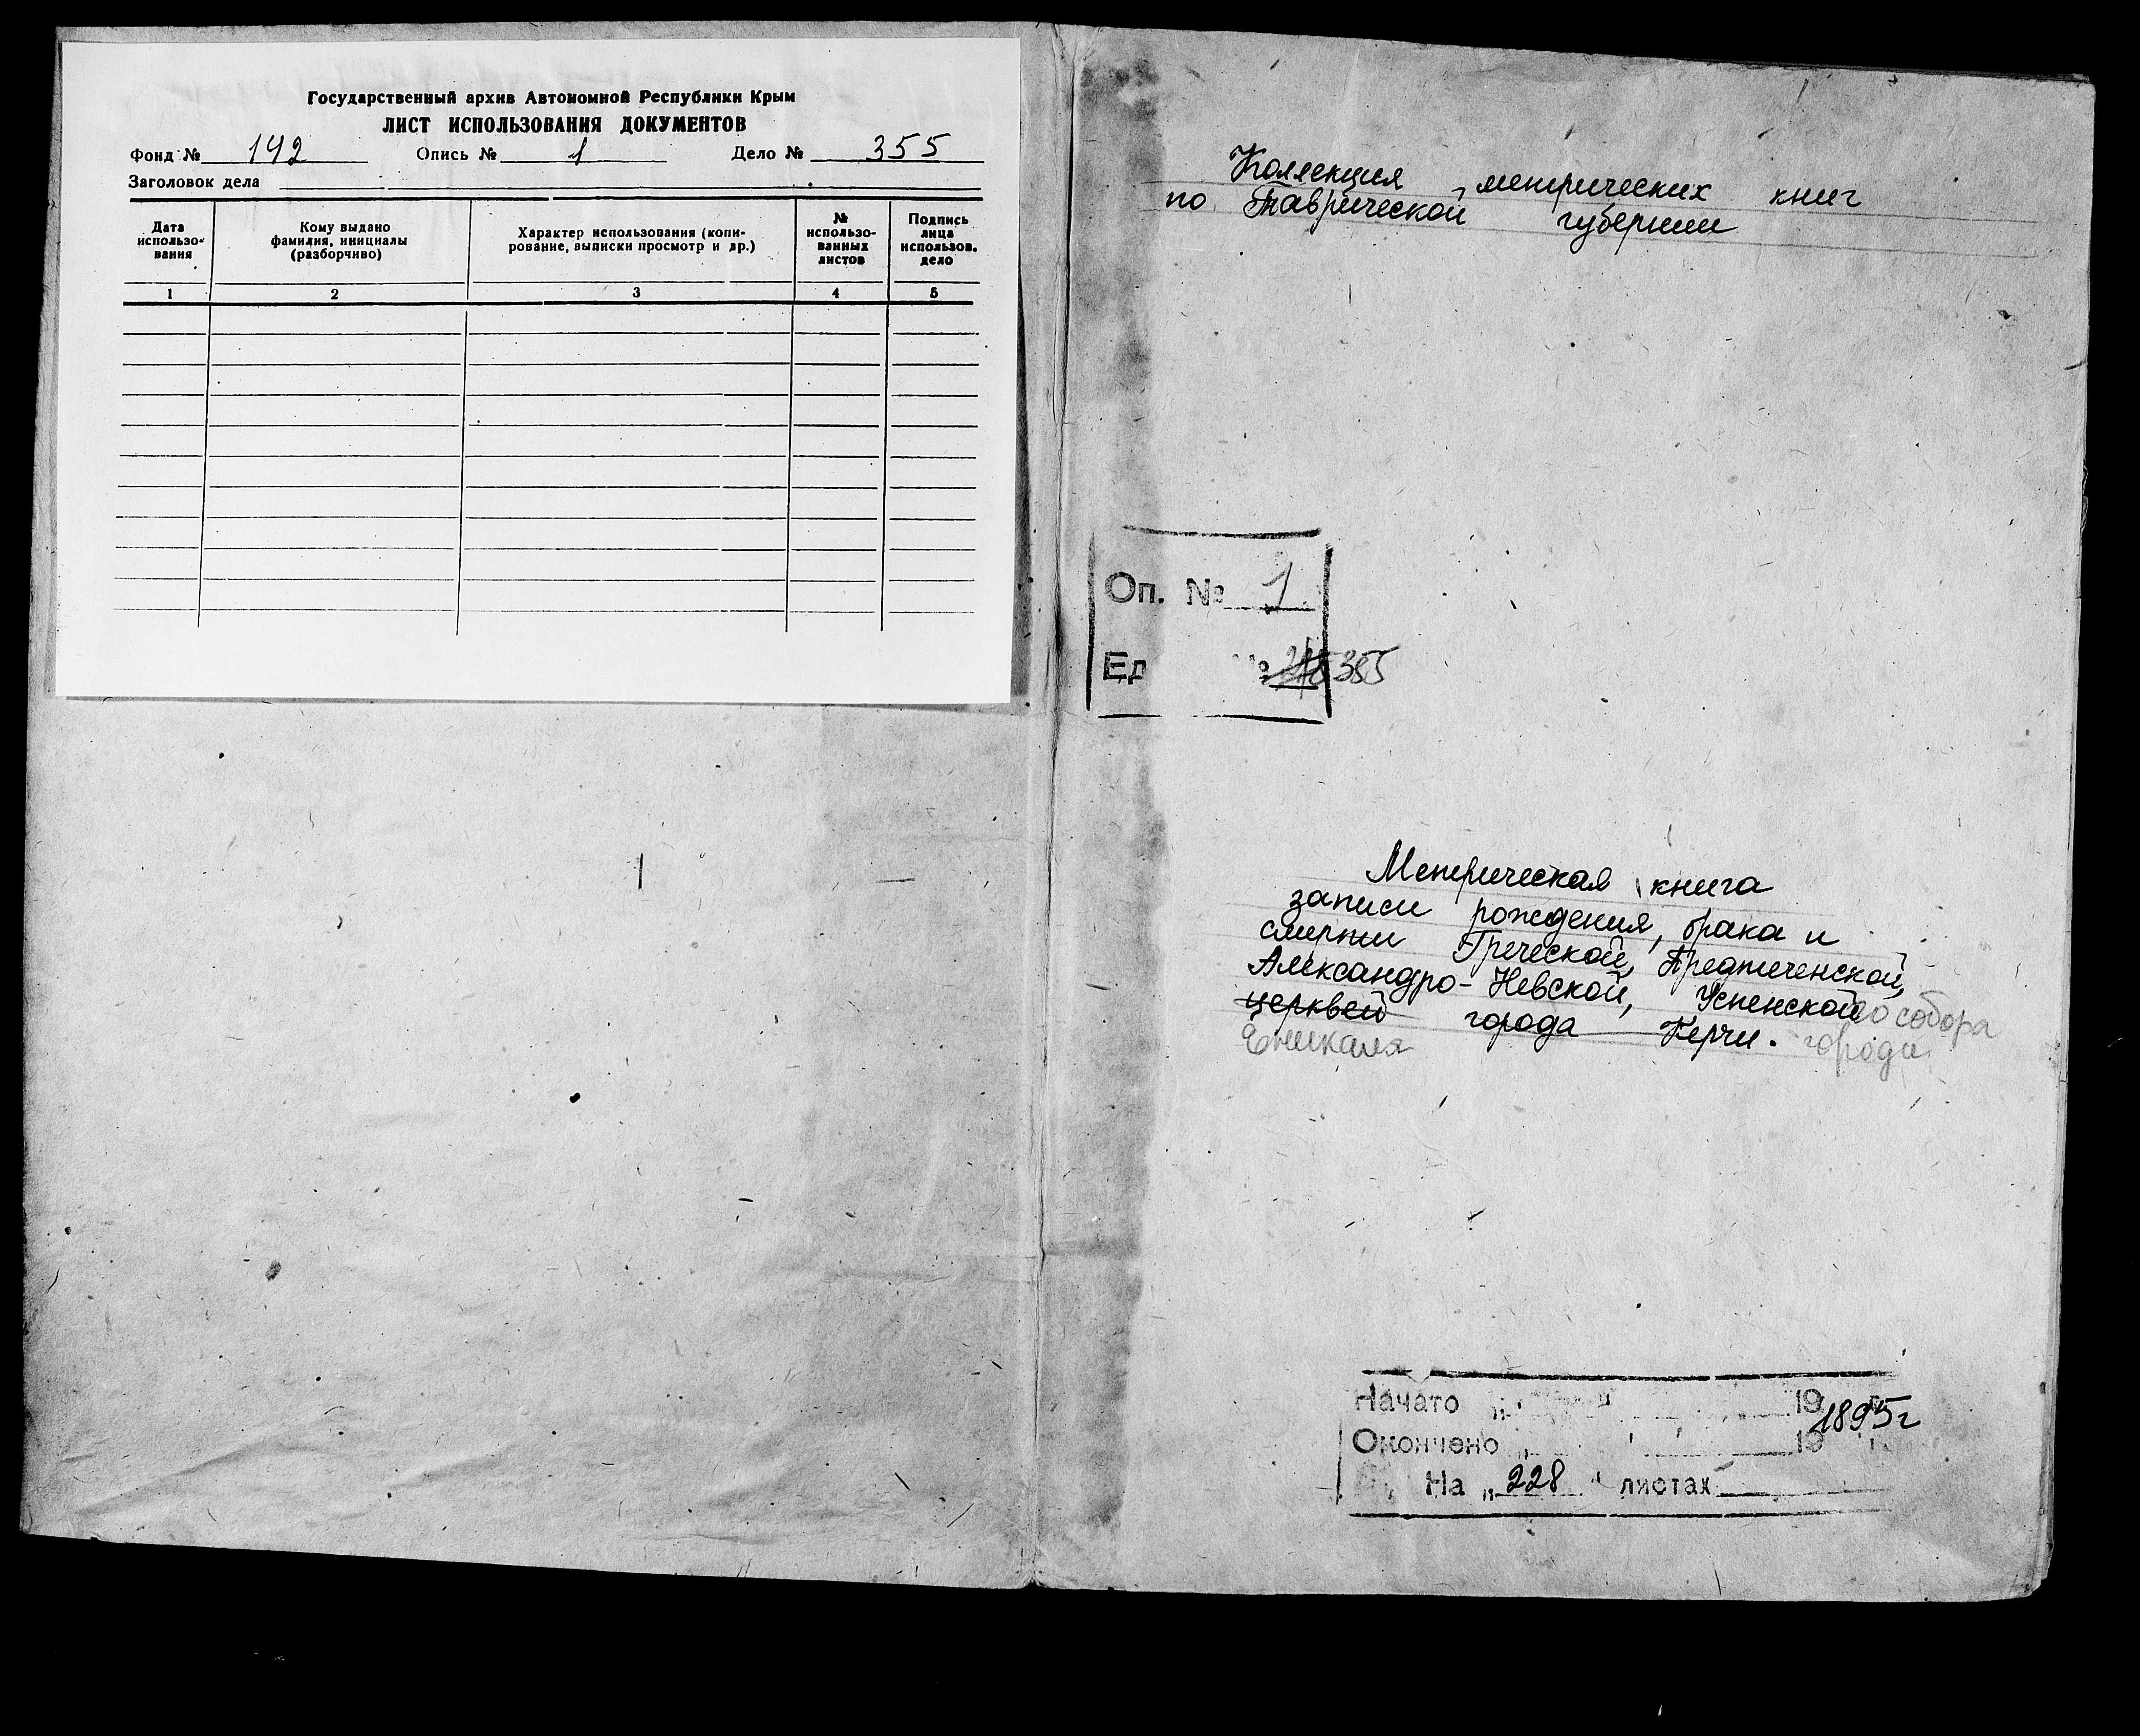 Государственный архив Автономной Республики Крым
ЛИСТ ИСПОЛЬЗОВАНИЯ ДОКУМЕНТОВ
Фонд № 142 Опись № 1 Дело № 355
Заголовок дела
Дата использования
Кому выдано фамилия, инициалы (разборчиво)
Характер использования (копирование, выписки просмотр и др.)
№ использованных листов
Подпись лица использов. дело
1 2 3 4 5
Коллекция метрических книг
по Таврической губернии
Оп. № 1
Ед № 355
Метрическая книга
записи рождения, брака и
смерти Греческой, Предтеченской,
Александро-Невской, Успенской собора
церквей города Керчи. города
Еникаля
Начато 19 1895г
Окончено 19
На „228“ листах